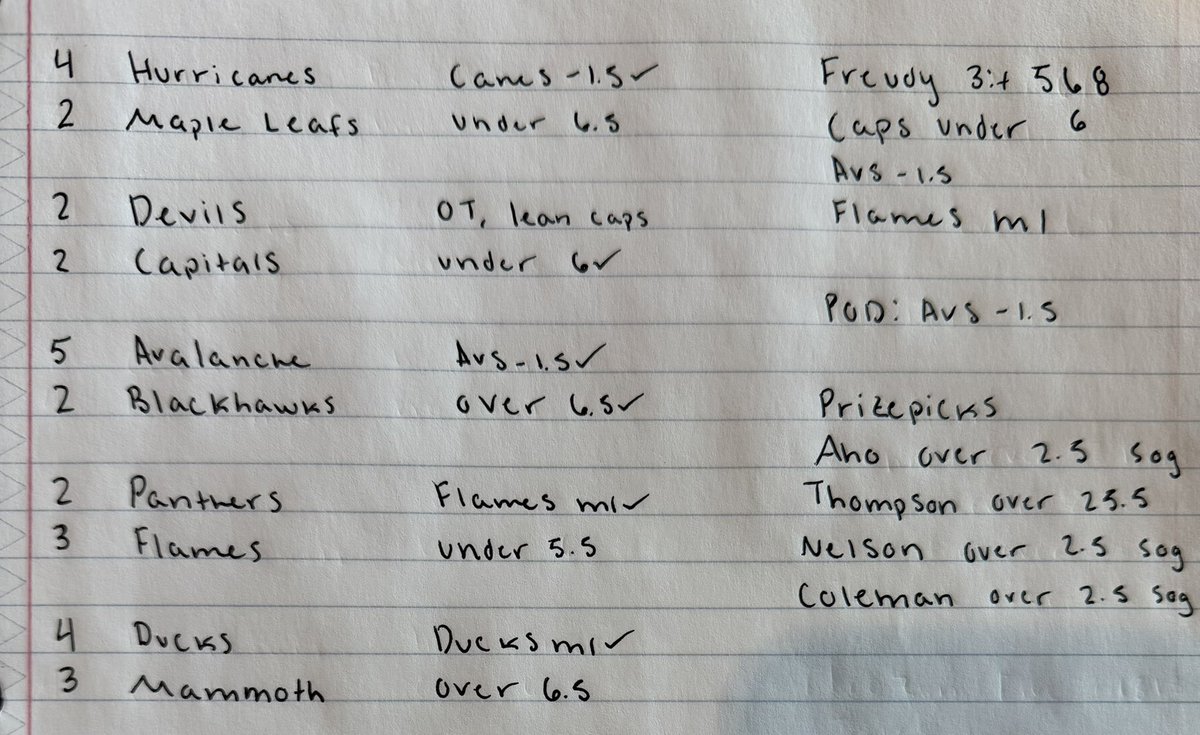 4 Hurricanes Canes -1.5 ✓
2 Maple Leafs under 6.5
2 Devils OT, lean caps
2 Capitals under 6 ✓
5 Avalanche Avs -1.5 ✓
2 Blackhawks over 6.5 ✓
2 Panthers Flames ml ✓
3 Flames under 5.5
4 Ducks Ducks ml ✓
3 Mammoth over 6.5
Freudy 3:+ 568
Caps under 6
Avs -1.5
Flames ml
POD: Avs -1.5
Prizepicks
Aho over 2.5 sog
Thompson over 25.5
Nelson over 2.5 sog
Coleman over 2.5 sog